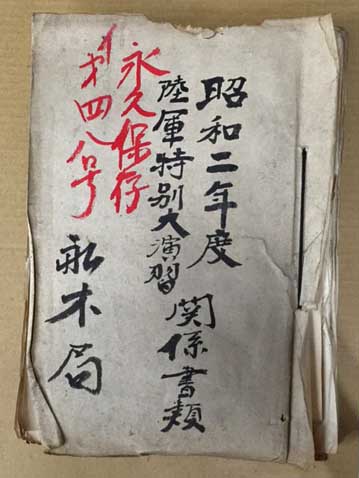 昭和二年度
陸軍特別大演習
関係書類
永久保存
第四八号
木局